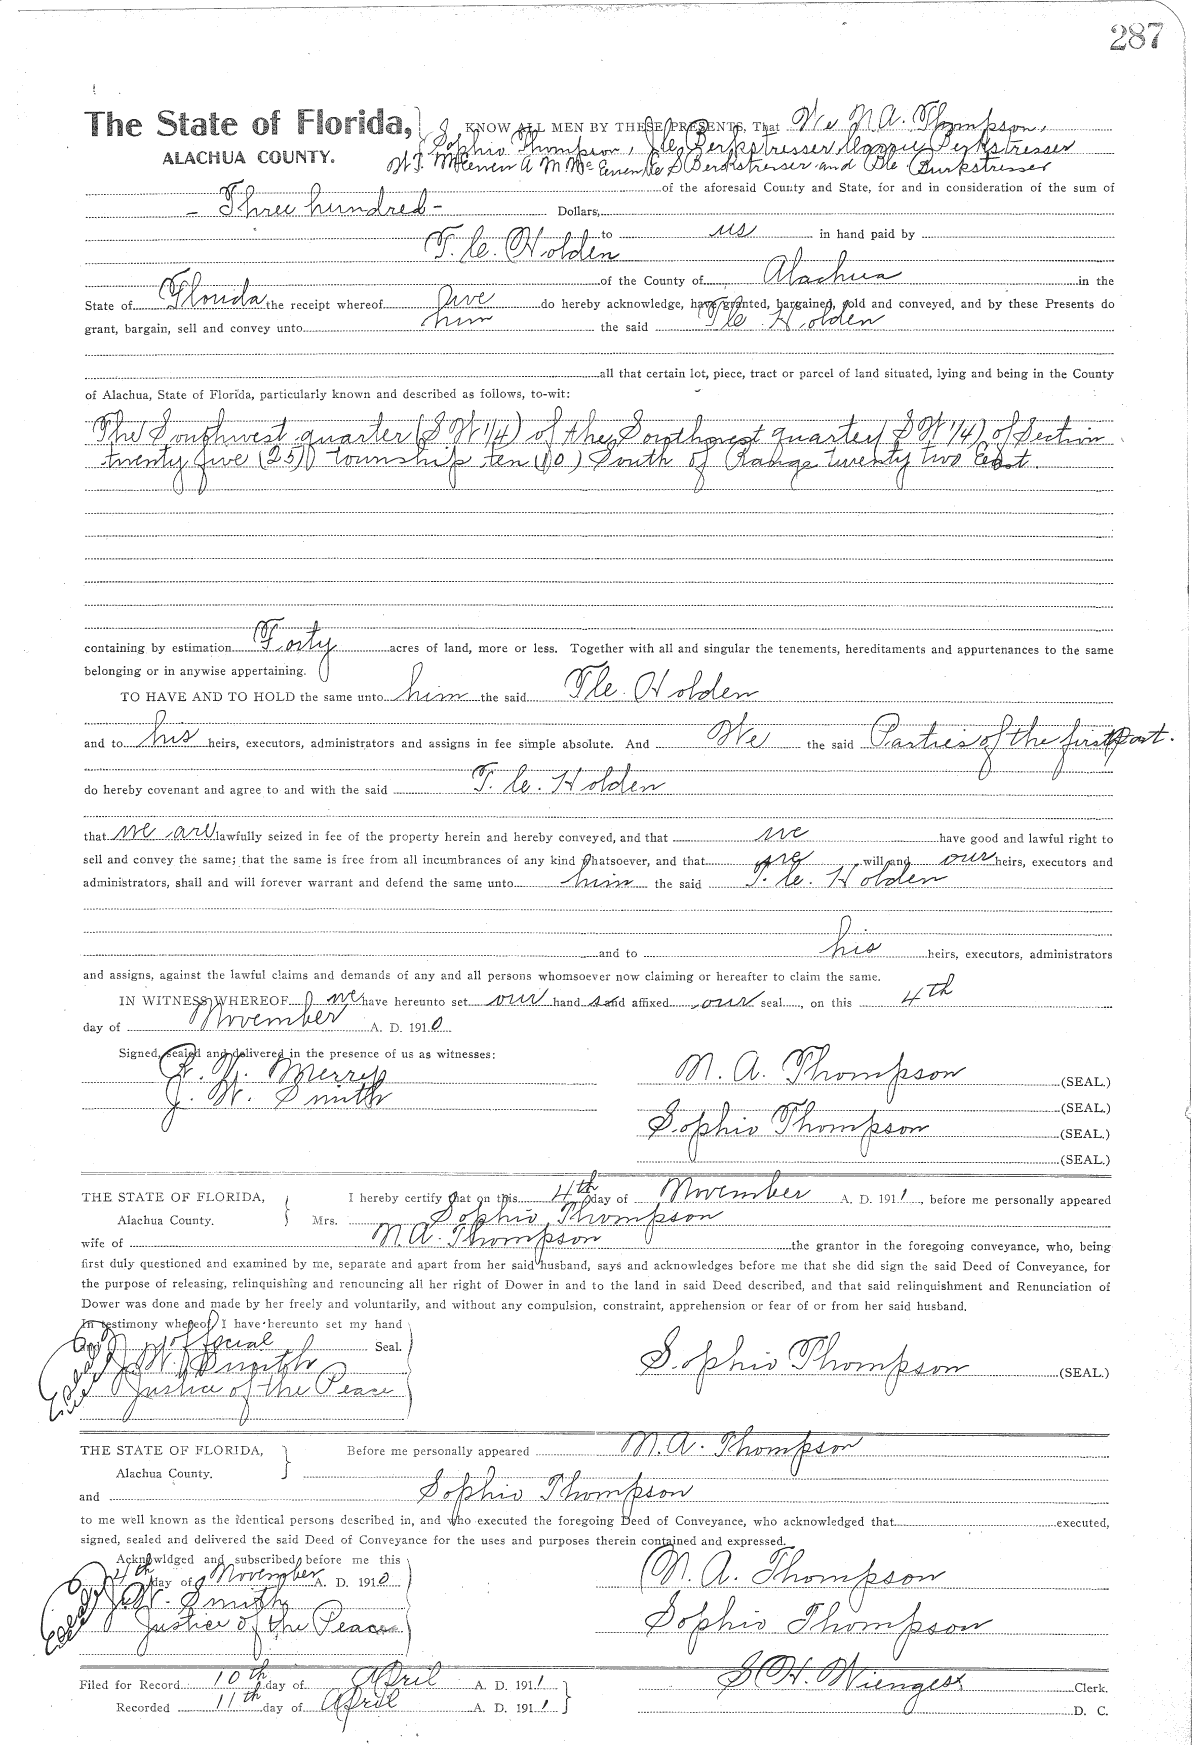 287
The State of Florida, KNOW ALL MEN BY THESE PRESENTS, That We N. A. Thompson,
ALACHUA COUNTY. Sophio Thompson, Berkstresser Berkstresser
A M Mc S Berkstresser and Burkstresser
of the aforesaid County and State, for and in consideration of the sum of
- Three hundred - Dollars,
to us in hand paid by
T. C. Holden
of the County of Alachua in the
State of Florida the receipt whereof we do hereby acknowledge, have granted, bargained, sold and conveyed, and by these Presents do
grant, bargain, sell and convey unto him the said T. C. Holden
all that certain lot, piece, tract or parcel of land situated, lying and being in the County
of Alachua, State of Florida, particularly known and described as follows, to-wit:
The Southwest quarter (S W 1/4) of the Southwest quarter (S W 1/4) of Section
twenty five (25) township ten (10) South of Range twenty two East.
containing by estimation Forty acres of land, more or less. Together with all and singular the tenements, hereditaments and appurtenances to the same
belonging or in anywise appertaining.
TO HAVE AND TO HOLD the same unto him the said T. C. Holden
and to his heirs, executors, administrators and assigns in fee simple absolute. And We the said Parties of the first part.
do hereby covenant and agree to and with the said T. C. Holden
that we are lawfully seized in fee of the property herein and hereby conveyed, and that we have good and lawful right to
sell and convey the same; that the same is free from all incumbrances of any kind whatsoever, and that we will and our heirs, executors and
administrators, shall and will forever warrant and defend the same unto him the said T. C. Holden
and to his heirs, executors, administrators
and assigns, against the lawful claims and demands of any and all persons whomsoever now claiming or hereafter to claim the same.
IN WITNESS WHEREOF we have hereunto set our hand and affixed our seal, on this 4th
day of November A. D. 1910
Signed, sealed and delivered in the presence of us as witnesses:
W. Merry N. A. Thompson (SEAL.)
J. W. Smith (SEAL.)
Sophio Thompson (SEAL.)
(SEAL.)
THE STATE OF FLORIDA, I hereby certify that on this 4th day of November A. D. 1911, before me personally appeared
Alachua County. Mrs. Sophio Thompson
wife of N. A. Thompson the grantor in the foregoing conveyance, who, being
first duly questioned and examined by me, separate and apart from her said husband, says and acknowledges before me that she did sign the said Deed of Conveyance, for
the purpose of releasing, relinquishing and renouncing all her right of Dower in and to the land in said Deed described, and that said relinquishment and Renunciation of
Dower was done and made by her freely and voluntarily, and without any compulsion, constraint, apprehension or fear of or from her said husband.
In testimony whereof I have hereunto set my hand
and official Seal.
J. W. Smith Sophio Thompson (SEAL.)
Justice of the Peace
THE STATE OF FLORIDA, Before me personally appeared N. A. Thompson
Alachua County.
and Sophio Thompson
to me well known as the identical persons described in, and who executed the foregoing Deed of Conveyance, who acknowledged that executed,
signed, sealed and delivered the said Deed of Conveyance for the uses and purposes therein contained and expressed.
Acknowldged and subscribed before me this
4th day of November A. D. 1910 N. A. Thompson
J. W. Smith
Justice of the Peace Sophio Thompson
Filed for Record 10th day of April A. D. 1911 S. H. Wienges Clerk.
Recorded 11th day of April A. D. 1911 D. C.